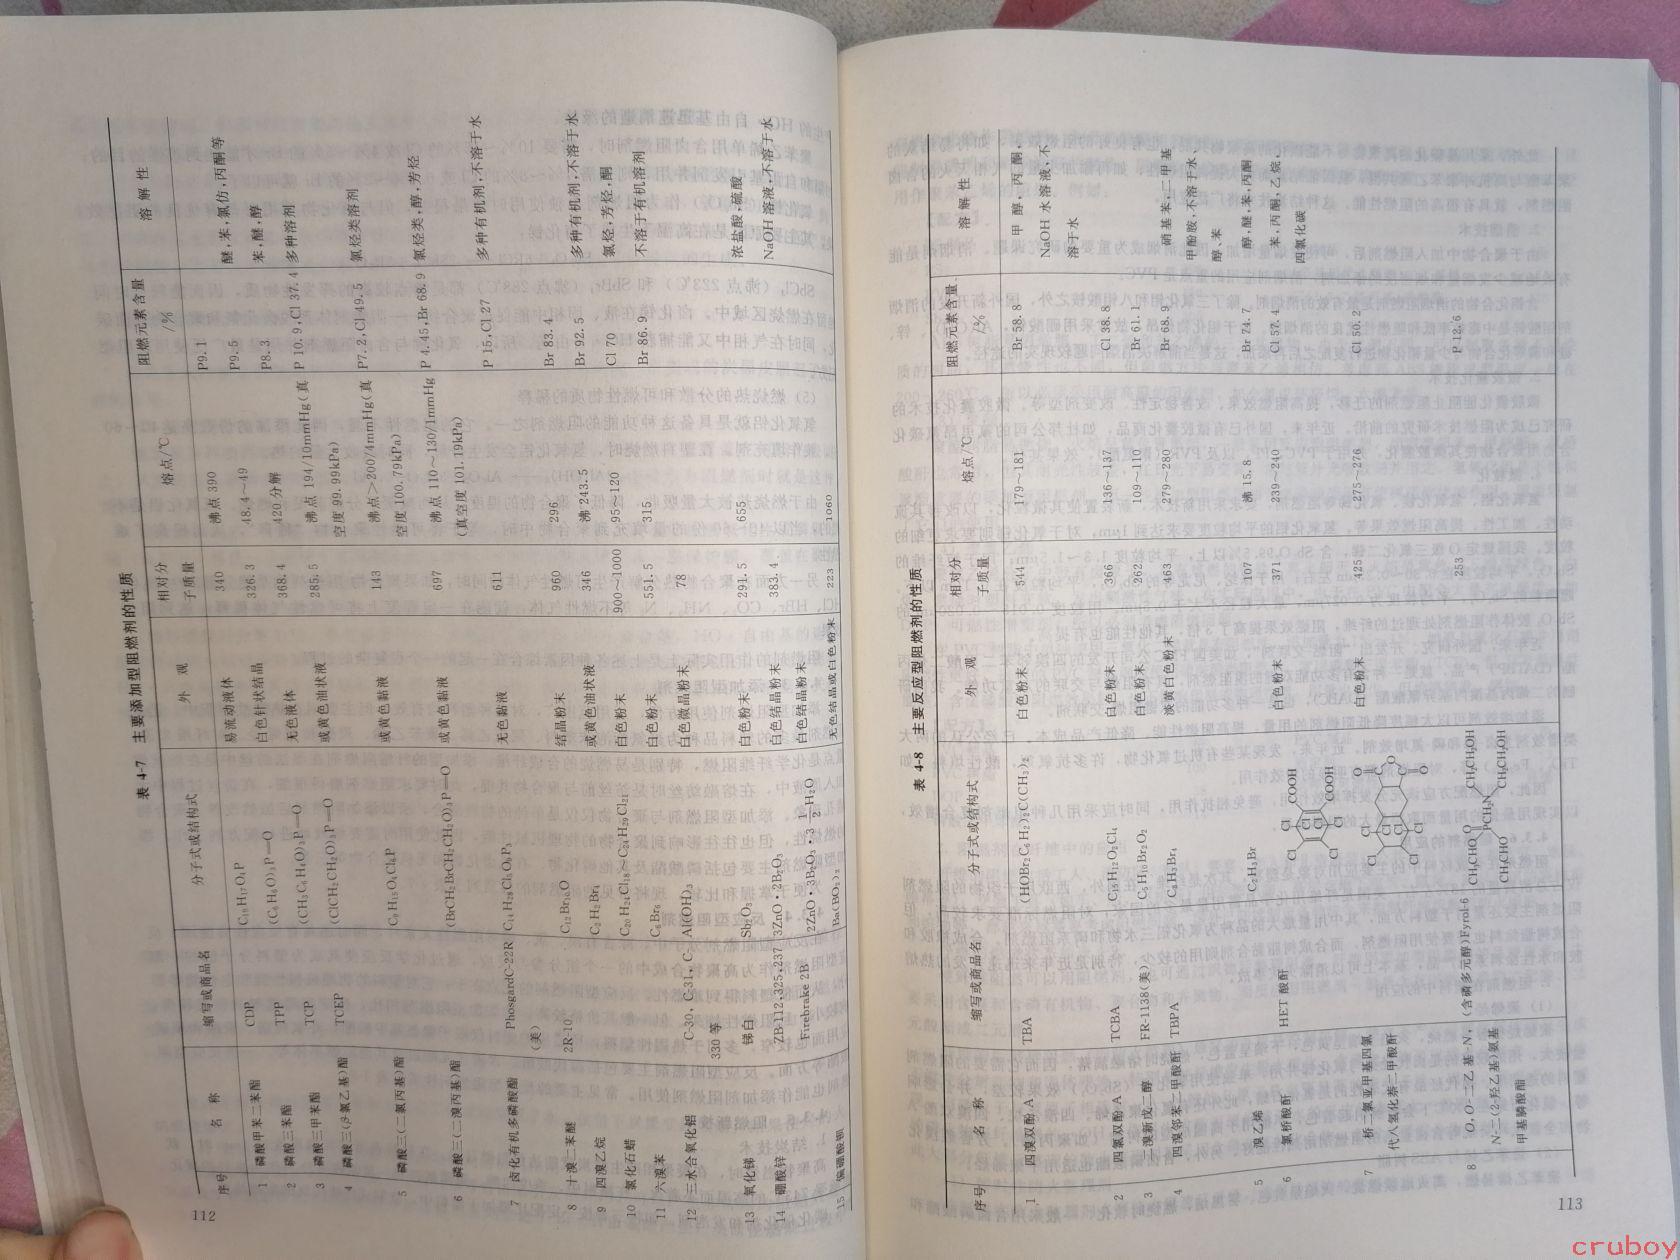 表 4-7 主要添加型阻燃剂的性质
序号 名称 缩写或商品名 分子式或结构式 外观 相对分子质量 熔点/℃ 阻燃元素含量/% 溶解性
1 磷酸甲苯二苯酯 CDP C₁₉H₁₇O₄P 易流动液体 340 沸点 390 P9.1 醚,苯,氯仿,丙酮等
2 磷酸三苯酯 TPP (C₆H₅O)₃P=O 白色针状结晶 326.3 48.4～49 P9.5 苯,醚,醇
3 磷酸三甲苯酯 TCP (CH₃C₆H₄O)₃P=O 无色液体 368.4 420 分解 P8.3 多种溶剂
4 磷酸三(β-氯乙基)酯 TCEP (ClCH₂CH₂O)₃P=O 或黄色油状液 285.5 沸点 194/10mmHg(真空度 99.99kPa) P 10.9,Cl 37.4
5 磷酸三(二氯丙基)酯 C₉H₁₅O₄Cl₆P 或黄色黏液 143 沸点>200/4mmHg(真空度 100.79kPa) P7.2,Cl 49.5 氯烃类溶剂
6 磷酸三(二溴丙基)酯 (BrCH₂BrCHCH₂O)₃P=O 或黄色黏液 697 沸点 110～130/1mmHg(真空度 101.19kPa) P 4.45,Br 68.9 氯烃类,醇,芳烃
7 卤化有机多磷酸酯 PhosgardC-22R(美) 无色黏液 611 P 15,Cl 27 多种有机剂,不溶于水
8 十溴二苯醚 2R-10 C₁₂Br₁₀O 结晶粉末 960 296 Br 83.4
9 四溴乙烷 C₂H₂Br₄ 或黄色油状液 346 沸 243.5 Br 92.5 多种有机剂,不溶于水
10 氯化石蜡 C₂₀H₂₄Cl₁₈～C₂₄H₂₉Cl₂₁ 白色粉末 900～1000 95～120 Cl 70 氯烃,芳烃,酮
11 六溴苯 C₆Br₆ 白色粉末 551.5 315 Br 86.9 不溶于有机溶剂
12 三水合氧化铝 C-30, C-31, C-330 等 Al(OH)₃ 白色微晶粉末 78
13 氧化锑 锑白 Sb₂O₃ 白色粉末 291.5 655 浓盐酸,硫酸
14 硼酸锌 ZB-112,325,237 3ZnO·2B₂O₃ 白色结晶粉末 383.4 NaOH 溶液,不溶于水
Firebrake 2B 2ZnO·3B₂O₃·3 1/2 H₂O 白色结晶粉末
15 偏硼酸钡 Ba(BO₂)₂ 无色结晶或白色粉末 223 1060
112
表 4-8 主要反应型阻燃剂的性质
序号 名称 缩写或商品名 分子式或结构式 外观 相对分子质量 熔点/℃ 阻燃元素含量/% 溶解性
1 四溴双酚 A TBA (HOBr₂C₆H₂)₂C(CH₃)₂ 白色粉末 544 179～181 Br 58.8 甲醇,丙酮,NaOH 水溶液,不溶于水
2 四氯双酚 A TCBA C₁₅H₁₂O₂Cl₄ 白色粉末 366 136～137 Cl 38.8
3 二溴新戊二醇 FR-1138(美) C₅H₁₀Br₂O₂ 白色粉末 262 109～110 Br 61.1
4 四溴邻苯二甲酸酐 TBPA 淡黄白色粉末 463 279～280 Br 68.9 硝基苯,二甲基甲酚胺,不溶于水,醇,苯
5 溴乙烯 C₂H₃Br 107 沸 15.8 Br 74.7 醇,醚,苯,丙酮
6 氯桥酸酐 HET 酸酐 Cl Cl Cl Cl Cl Cl COOH COOH 白色粉末 371 239～240 Cl 57.4 苯,丙酮,乙烷,四氯化碳
7 桥二氯亚甲基四氯代八氢化萘二甲酸酐 Cl Cl Cl Cl Cl Cl O O O 白色粉末 425 275～276 Cl 50.2
8 O,O-二乙基-N,N-二(2-羟乙基)氨基甲基膦酸酯 (含磷多元醇)Fyrol-6 CH₃CH₂O CH₃CH₂O O PCH₂N CH₂CH₂OH CH₂CH₂OH 253 P 12.6
113
cruboy